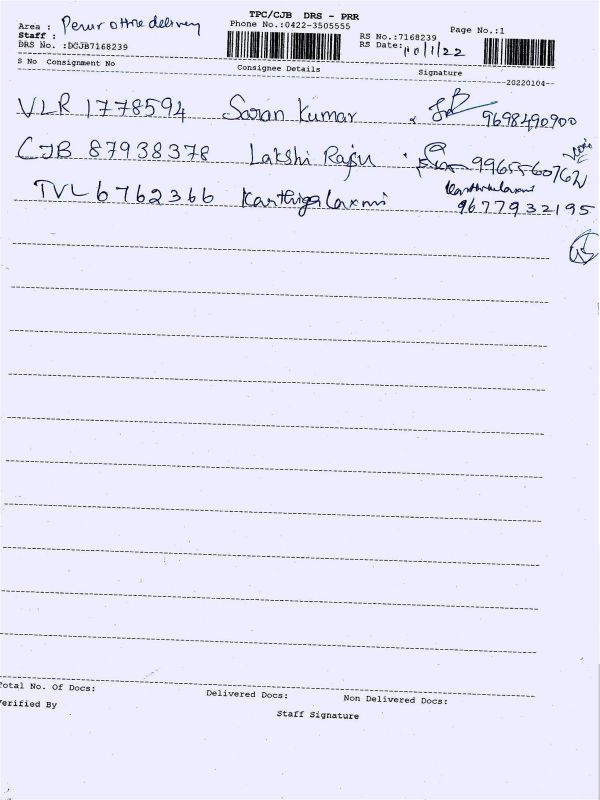 TPC/CJB DRS - PRR
Area : Perur office delivery Phone No.:0422-3505555 Page No.:1
Staff : RS No.:7168239
DRS No. :DCJB7168239 RS Date: 10/1/22
S No Consignment No Consignee Details Signature
20220104
VLR 1778594 Saran Kumar 9698490900
CJB 87938378 Lakshi Raju 996556076
TVL 6762366 Karthigalaxmi 9677932195
Total No. Of Docs: Delivered Docs: Non Delivered Docs:
Verified By Staff Signature